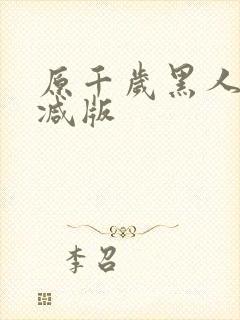 原千岁黑人
减版
李召